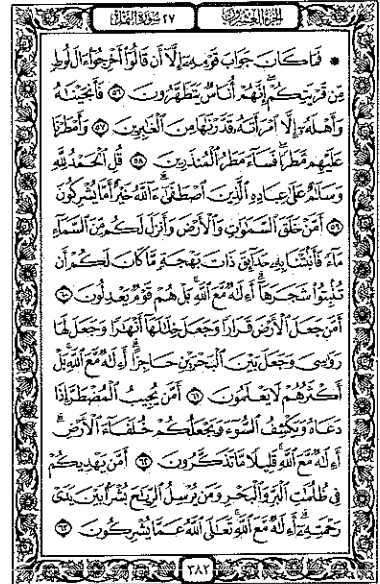 الجزء العشرون
٢٧ سورة النمل
۞ فَمَا كَانَ جَوَابَ قَوْمِهِۦٓ إِلَّآ أَن قَالُوٓا۟ أَخْرِجُوٓا۟ ءَالَ لُوطٍ
مِّن قَرْيَتِكُمْ ۖ إِنَّهُمْ أُنَاسٌ يَتَطَهَّرُونَ ٥٦ فَأَنجَيْنَـٰهُ
وَأَهْلَهُۥٓ إِلَّا ٱمْرَأَتَهُۥ قَدَّرْنَـٰهَا مِنَ ٱلْغَـٰبِرِينَ ٥٧ وَأَمْطَرْنَا
عَلَيْهِم مَّطَرًا ۖ فَسَآءَ مَطَرُ ٱلْمُنذَرِينَ ٥٨ قُلِ ٱلْحَمْدُ لِلَّهِ
وَسَلَـٰمٌ عَلَىٰ عِبَادِهِ ٱلَّذِينَ ٱصْطَفَىٰٓ ۗ ءَآللَّهُ خَيْرٌ أَمَّا يُشْرِكُونَ
٥٩ أَمَّنْ خَلَقَ ٱلسَّمَـٰوَٰتِ وَٱلْأَرْضَ وَأَنزَلَ لَكُم مِّنَ ٱلسَّمَآءِ
مَآءً فَأَنۢبَتْنَا بِهِۦ حَدَآئِقَ ذَاتَ بَهْجَةٍ مَّا كَانَ لَكُمْ أَن
تُنۢبِتُوا۟ شَجَرَهَآ ۗ أَءِلَـٰهٌ مَّعَ ٱللَّهِ ۚ بَلْ هُمْ قَوْمٌ يَعْدِلُونَ ٦٠
أَمَّن جَعَلَ ٱلْأَرْضَ قَرَارًا وَجَعَلَ خِلَـٰلَهَآ أَنْهَـٰرًا وَجَعَلَ لَهَا
رَوَٰسِىَ وَجَعَلَ بَيْنَ ٱلْبَحْرَيْنِ حَاجِزًا ۗ أَءِلَـٰهٌ مَّعَ ٱللَّهِ ۚ بَلْ
أَكْثَرُهُمْ لَا يَعْلَمُونَ ٦١ أَمَّن يُجِيبُ ٱلْمُضْطَرَّ إِذَا
دَعَاهُ وَيَكْشِفُ ٱلسُّوٓءَ وَيَجْعَلُكُمْ خُلَفَآءَ ٱلْأَرْضِ ۗ
أَءِلَـٰهٌ مَّعَ ٱللَّهِ ۚ قَلِيلًا مَّا تَذَكَّرُونَ ٦٢ أَمَّن يَهْدِيكُمْ
فِى ظُلُمَـٰتِ ٱلْبَرِّ وَٱلْبَحْرِ وَمَن يُرْسِلُ ٱلرِّيَـٰحَ بُشْرًۢا بَيْنَ يَدَىْ
رَحْمَتِهِۦٓ ۗ أَءِلَـٰهٌ مَّعَ ٱللَّهِ ۚ تَعَـٰلَى ٱللَّهُ عَمَّا يُشْرِكُونَ ٦٣
٣٨٢